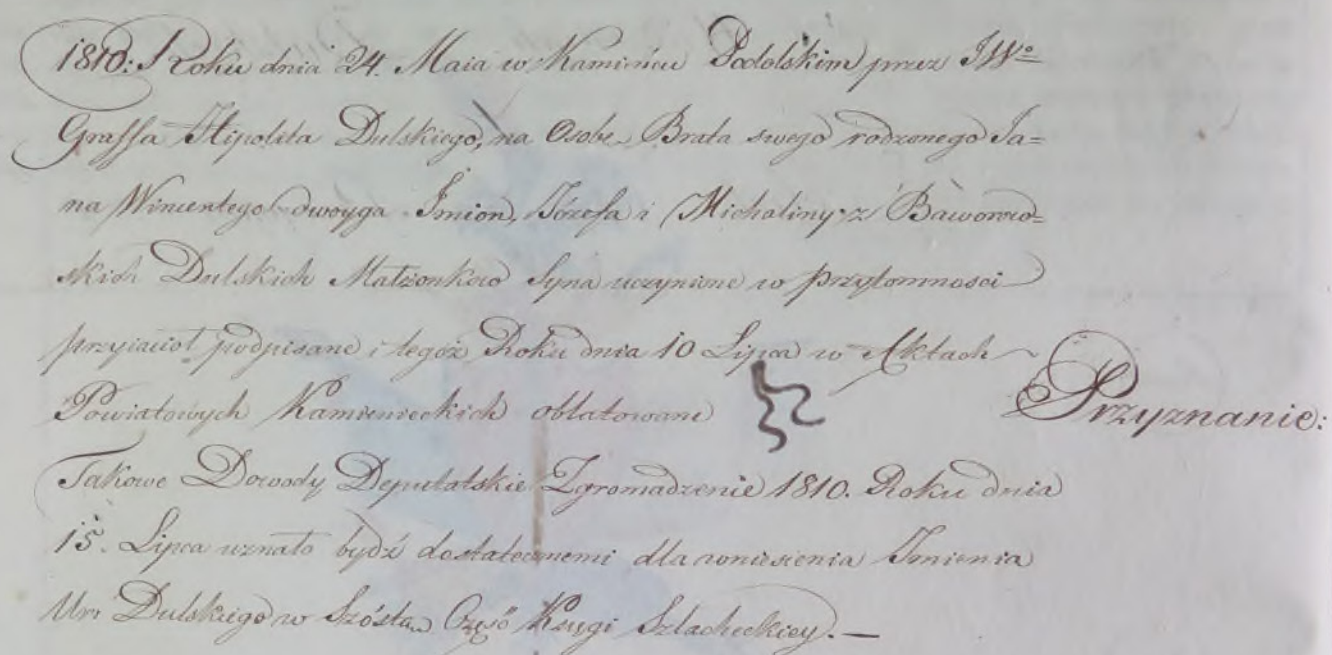 1810: Roku dnia 24. Maia w Kamieńcu Podolskim przez JWº
Graffa Hipolita Dulskiego, na Osobe Brata swego rodzonego Ja=
na Wincentego dwoyga Imion, Józefa i Michaliny z Baworow=
skich Dulskich Małżonkow Syna uczynione w przytomnosci
przyiacioł podpisane i tegóż Roku dnia 10 Lipca w Aktach
Powiatowych Kamienieckich oblatowane
Przyznanie:
Takowe Dowody Deputatskie Zgromadzenie 1810. Roku dnia
15. Lipca uznało bydź dostatecznemi dla wniesienia Imienia
Ur: Dulskiego w Szóstą Część Księgi Szlacheckiey. —